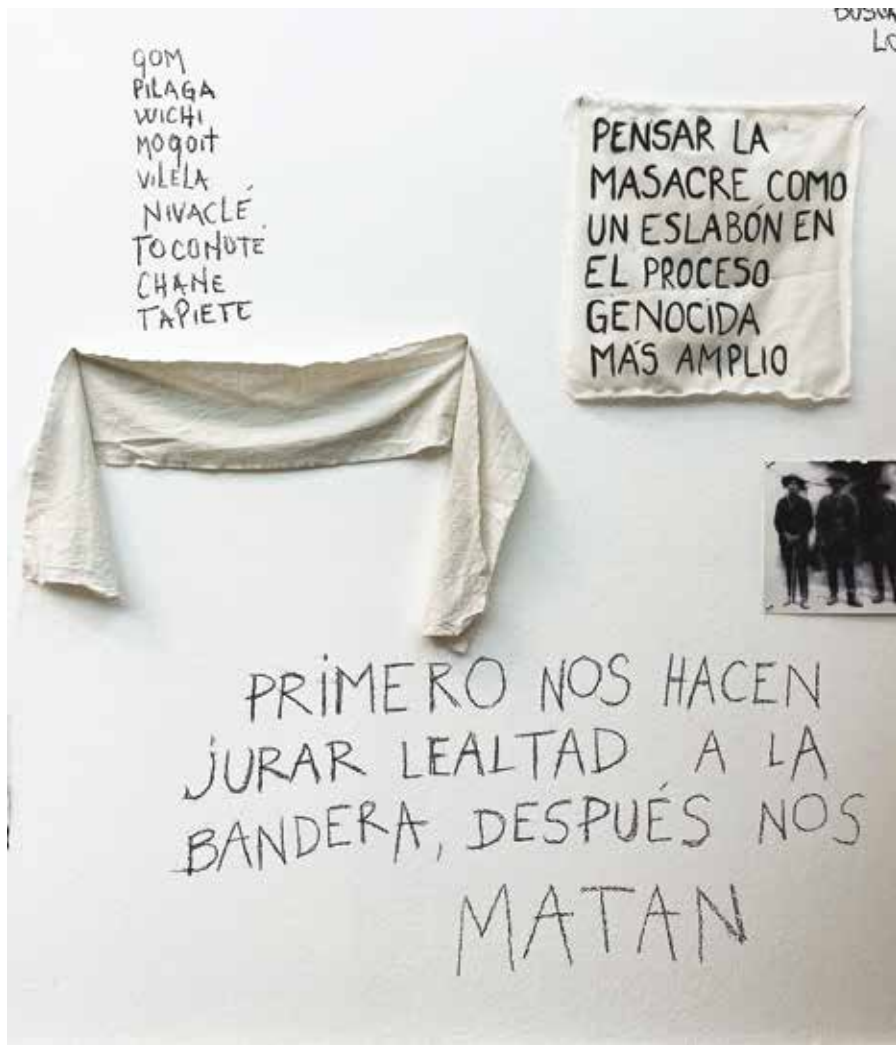 QOM
PILAGA
WICHI
MOQOIT
VILELA
NIVACLÉ
TOCONOTÉ
CHANE
TAPIETE
PENSAR LA
MASACRE COMO
UN ESLABÓN EN
EL PROCESO
GENOCIDA
MÁS AMPLIO
PRIMERO NOS HACEN
JURAR LEALTAD A LA
BANDERA, DESPUÉS NOS
MATAN